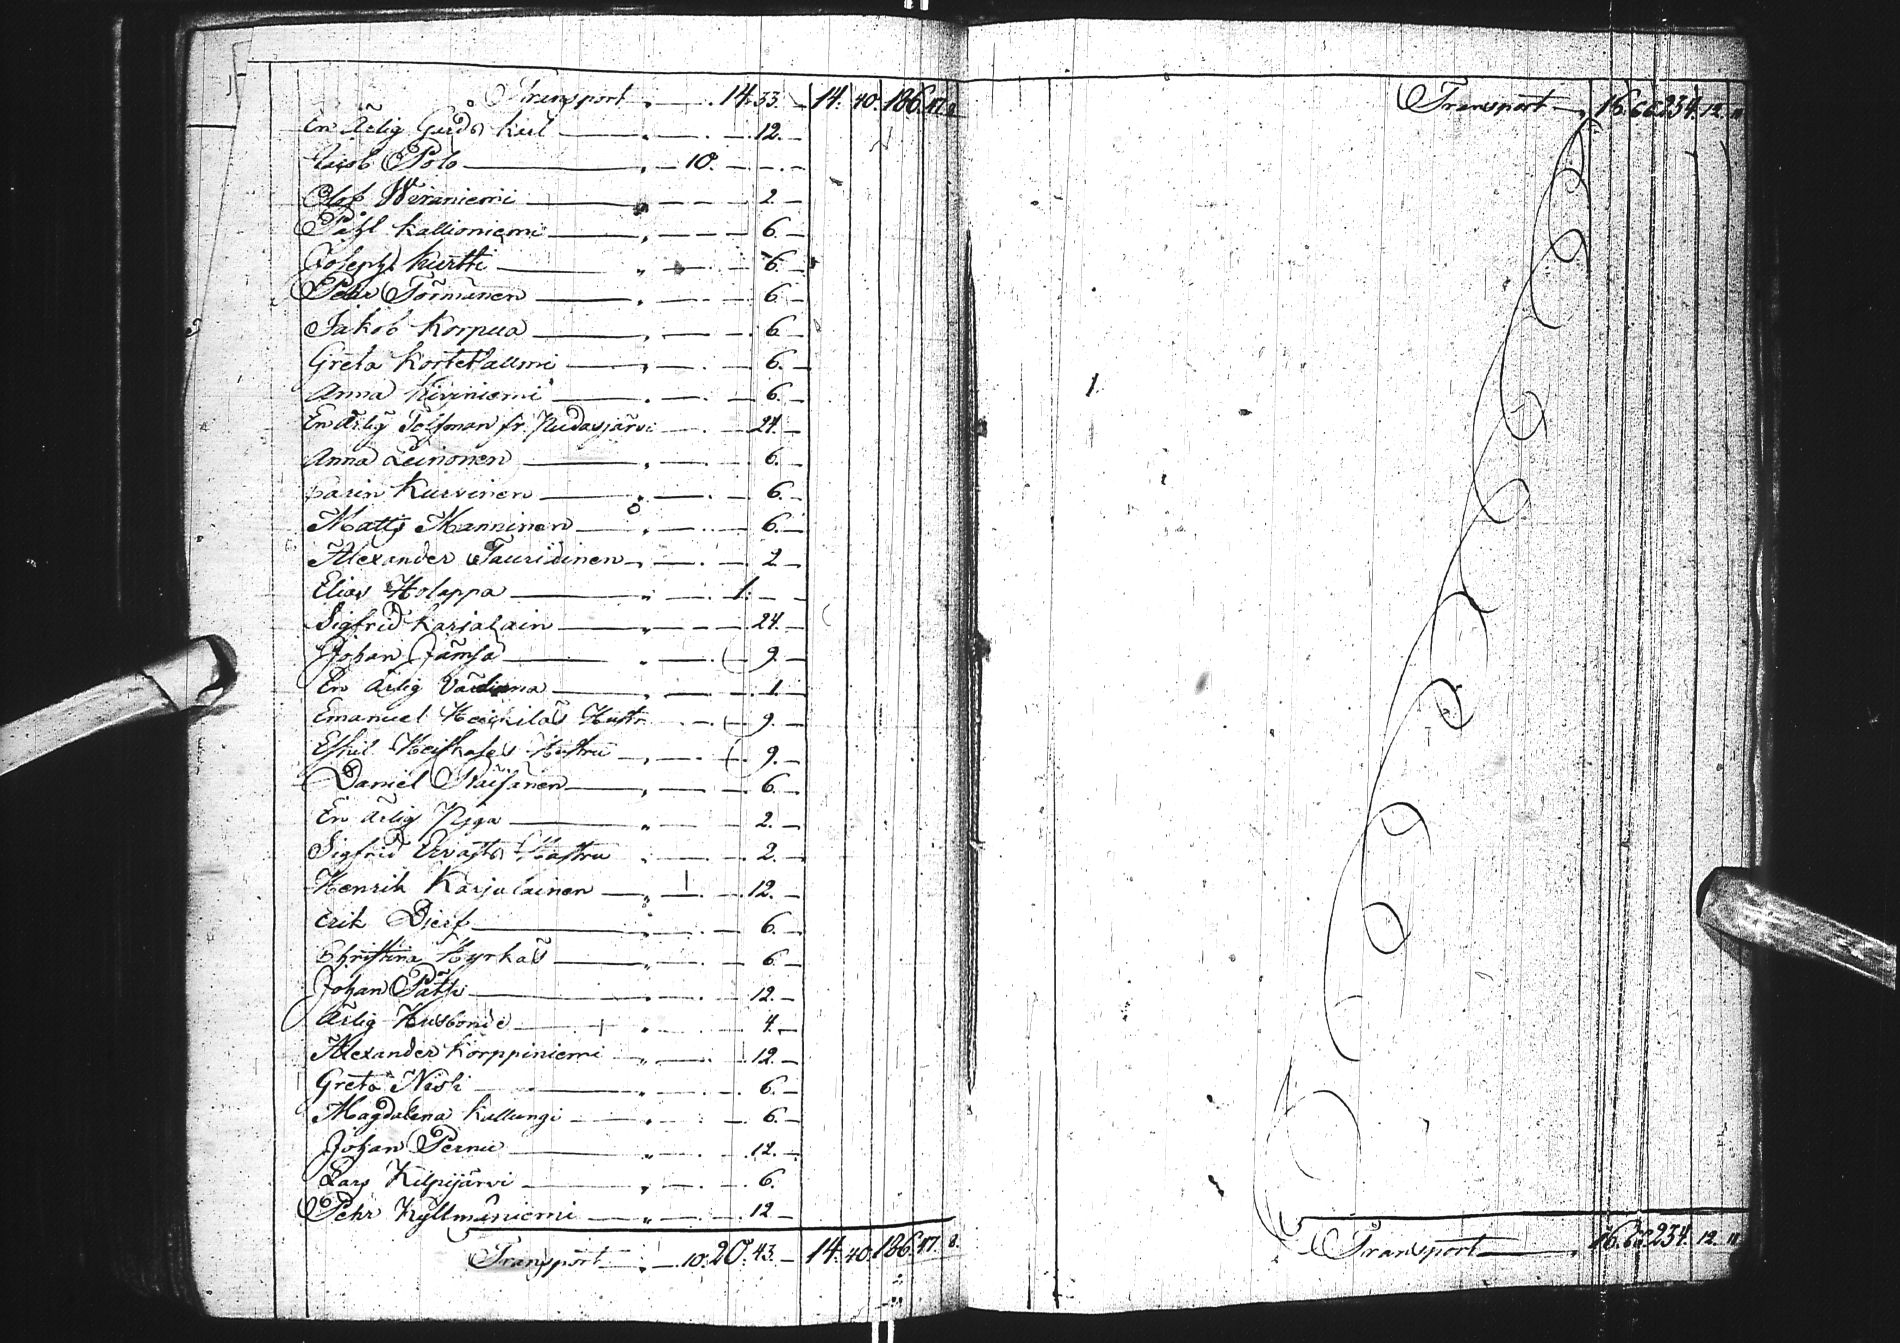 Transport „ 14. 33. — 14. 40. 186. 47. 8.
En Ärlig Gårds karl — 12. —
Jacob Polo — „ — 10. — . —
Olof Wiraniemi — 2 —
Påhl Kallioniemi — „ — 6. —
Joseph Kurtti — „ — 6. —
Pehr Törmänen — „ — 6. —
Jakob Korpua — „ — 6. —
Greta Kortetallmi — „ — 6. —
Anna Kiviniemi — „ — 6. —
En Ärlig Tolfman fr. Pudasjärvi — 24. —
Anna Leinonen — „ — 6. —
Carin Kurvinen — „ — 6. —
Matts Manninen — „ — 6. —
Alexander Tauriainen — „ — 2 —
Elias Holappa — „ — 1. —
Sigfrid Karjalain — „ — 24. —
Johan Jämsä — „ — 9. —
En Ärlig — „ — 1. —
Emanuel Heikiläs Hustr — 9. —
Eskil Hustru — „ — 9. —
Daniel Räisänen — „ — 6. —
En Ärlig Piga — „ — 2. —
Sigfrid Ervasts Hustru — 2. —
Henrik Karjalainen — „ — 12. —
Erik — „ — 6. —
Christina Hyrkäs — „ — 6. —
Johan Pätsi — „ — 12. —
Ärlig Husbonde — „ — 4. —
Alexander Korppiniemi — „ — 12. —
Greta Niski — „ — 6. —
Magdalena Kallungi — „ — 6. —
Johan Pernu — „ — 12. —
Lars Kilpijärvi — „ — 6. —
Pehr Kyllmäniemi — „ — 12 —
Transport — „ — 10. 20. 43. — 14. 40. 186. 47. 8.
Transport — „ 16. 234. 12. 11
Transport — „ 16. 234. 12. 11